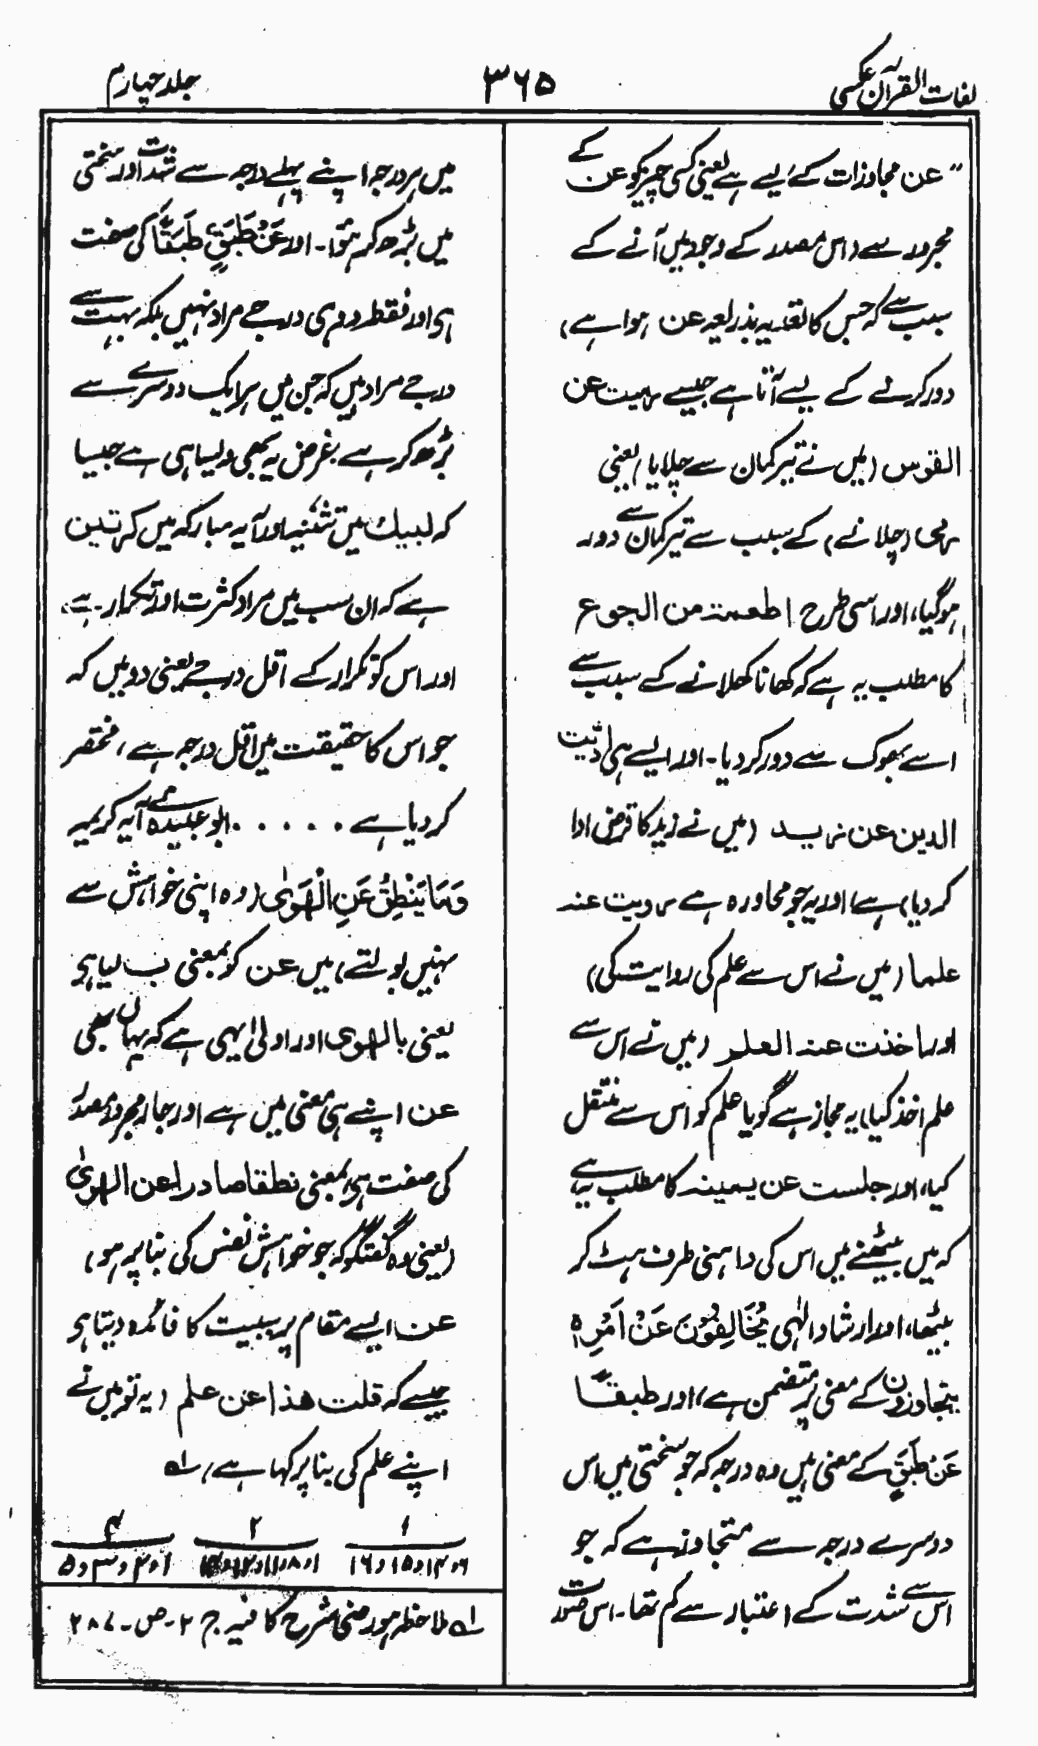 لغات القرآن عکسی
۳۶۵
جلد چہارم
"عن مجاوزات کے لیے ہے یعنی کسی چیز کو عن کے
مجرور سے (اس مصدر کے وجود میں آنے کے
سبب سے کہ جس کا تعدیہ بذریعہ عن ہوا ہے)
دور کرنے کے لیے آتا ہے جیسے رمیت عن
القوس (میں نے تیر کمان سے چلایا) یعنی
رمی (چلانے) کے سبب سے تیر کمان سے دور
ہو گیا، اور اسی طرح اطعمتہ من الجوع
کا مطلب یہ ہے کہ کھانا کھلانے کے سبب سے
اسے بھوک سے دور کر دیا۔ اور ایسے ہی ادیت
الدین عن زید (میں نے زید کا قرض ادا
کر دیا) ہے، اور یہ جو محاورہ ہے رویت عنہ
علما (میں نے اس سے علم کی روایت کی)
اور اخذت عنہ العلم (میں نے اس سے
علم اخذ کیا) یہ مجاز ہے گویا علم کو اس سے منتقل
کیا، اور جلست عن یمینہ کا مطلب یہ ہے
کہ میں بیٹھنے میں اس کی داہنی طرف ہٹ کر
بیٹھا، اور ارشاد الٰہی یُخَالِفُوْنَ عَنْ اَمْرِہٖ
یتجاوزون کے معنی پر متضمن ہے، اور طبقًا
عَنْ طَبَقٍ کے معنی ہیں وہ درجہ کہ جو سختی میں اس
دوسرے درجہ سے متجاوز ہے کہ جو
اس سے شدت کے اعتبار سے کم تھا۔ اس صورت
میں ہر درجہ اپنے پہلے درجہ سے شدت اور سختی
میں بڑھ کر ہوا۔ اور عَنْ طَبَقٍ طَبَقًا کی صفت
ہے اور فقط دو ہی درجے مراد نہیں بلکہ بہت سے
درجے مراد ہیں کہ جن میں ہر ایک دوسرے سے
بڑھ کر ہے بغرض یہ بھی ویسا ہی ہے جیسا
کہ لبیك میں تثنیہ اور آیہ مبارکہ میں کرتین
ہے کہ ان سب میں مراد کثرت اور تکرار ہے،
اور اس کو تکرار کے اقل درجے یعنی دو میں کہ
جو اس کا حقیقت میں اقل درجہ ہے، مختصر
کر دیا ہے ..... ابو عبیدہ نے آیہ کریمہ
وَمَا یَنْطِقُ عَنِ الْھَوٰی (وہ اپنی خواہش سے
نہیں بولتے) میں عن کو بمعنی ب لیا ہے
یعنی بالہوی اور اولیٰ یہی ہے کہ یہاں بھی
عن اپنے ہی معنی میں ہے اور جار مجرور مصدر
کی صفت ہے بمعنی نطقا صادرا عن الہویٰ
(یعنی وہ گفتگو کہ جو خواہش نفس کی بنا پر ہو)
عن ایسے مقام پر سببیت کا فائدہ دیتا ہے
جیسے کہ قلت ھذا عن علم (یہ تو میں نے
اپنے علم کی بنا پر کہا ہے) لہ
۱ ۲ ۴
لہ ملاحظہ ہو رضی شرح کافیہ ج ۲۔ص۔۲۸۷